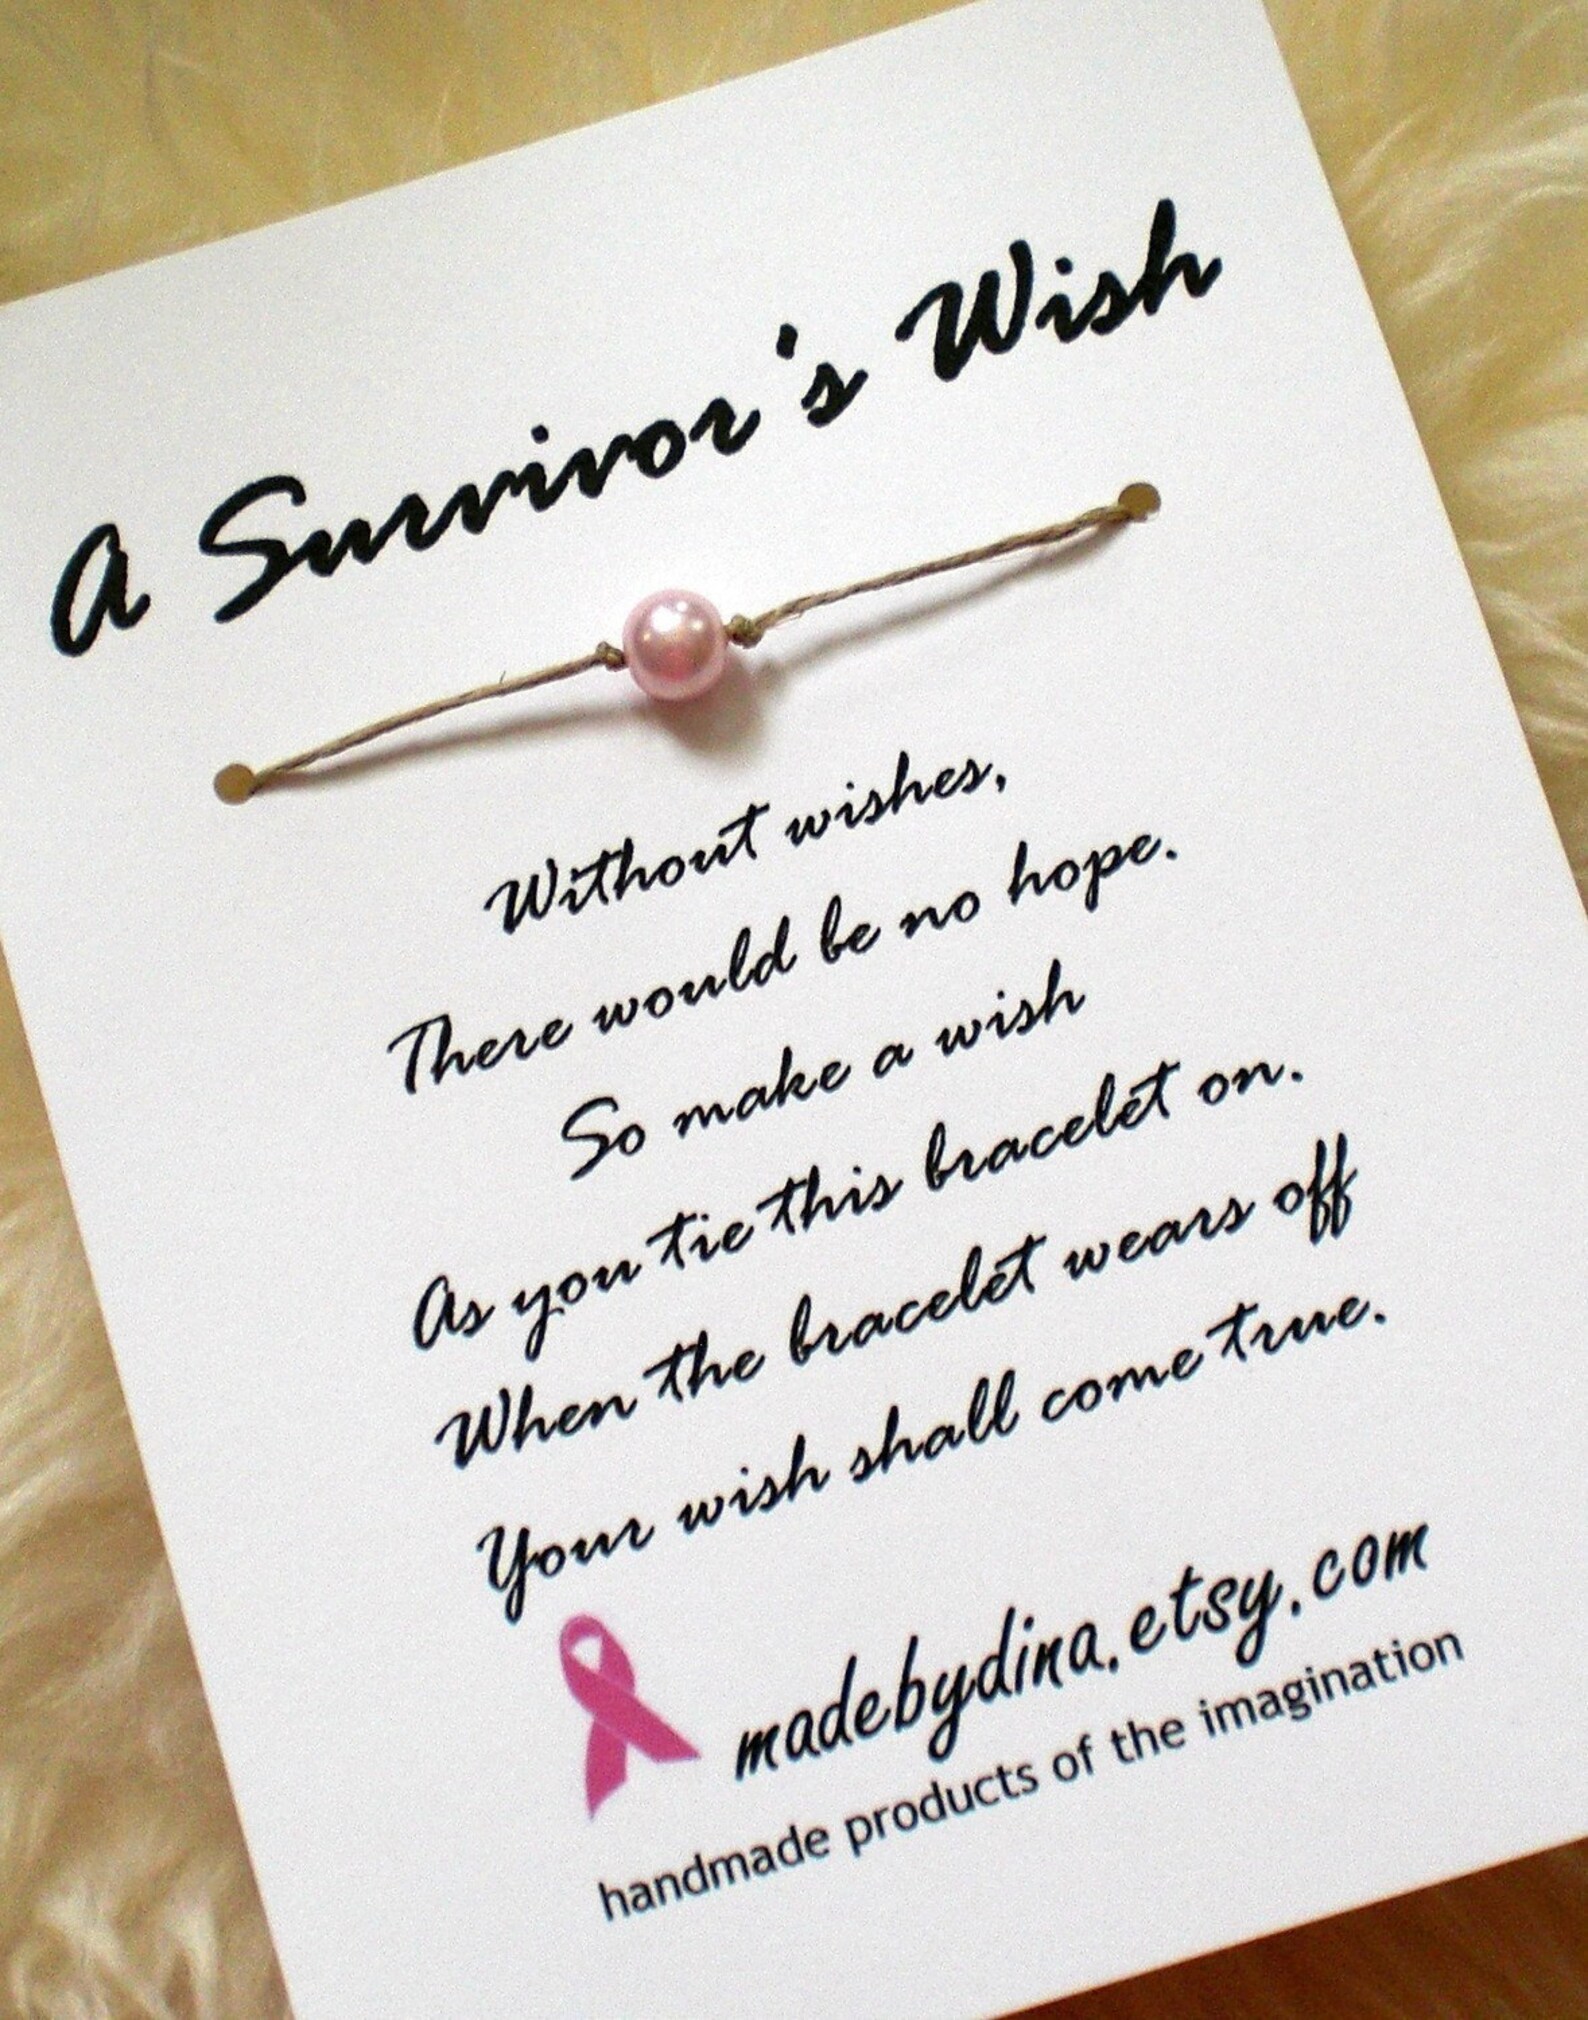 A Survivor's Wish
Without wishes,
There would be no hope.
So make a wish
As you tie this bracelet on.
When the bracelet wears off
Your wish shall come true.
madebydina.etsy.com
handmade products of the imagination